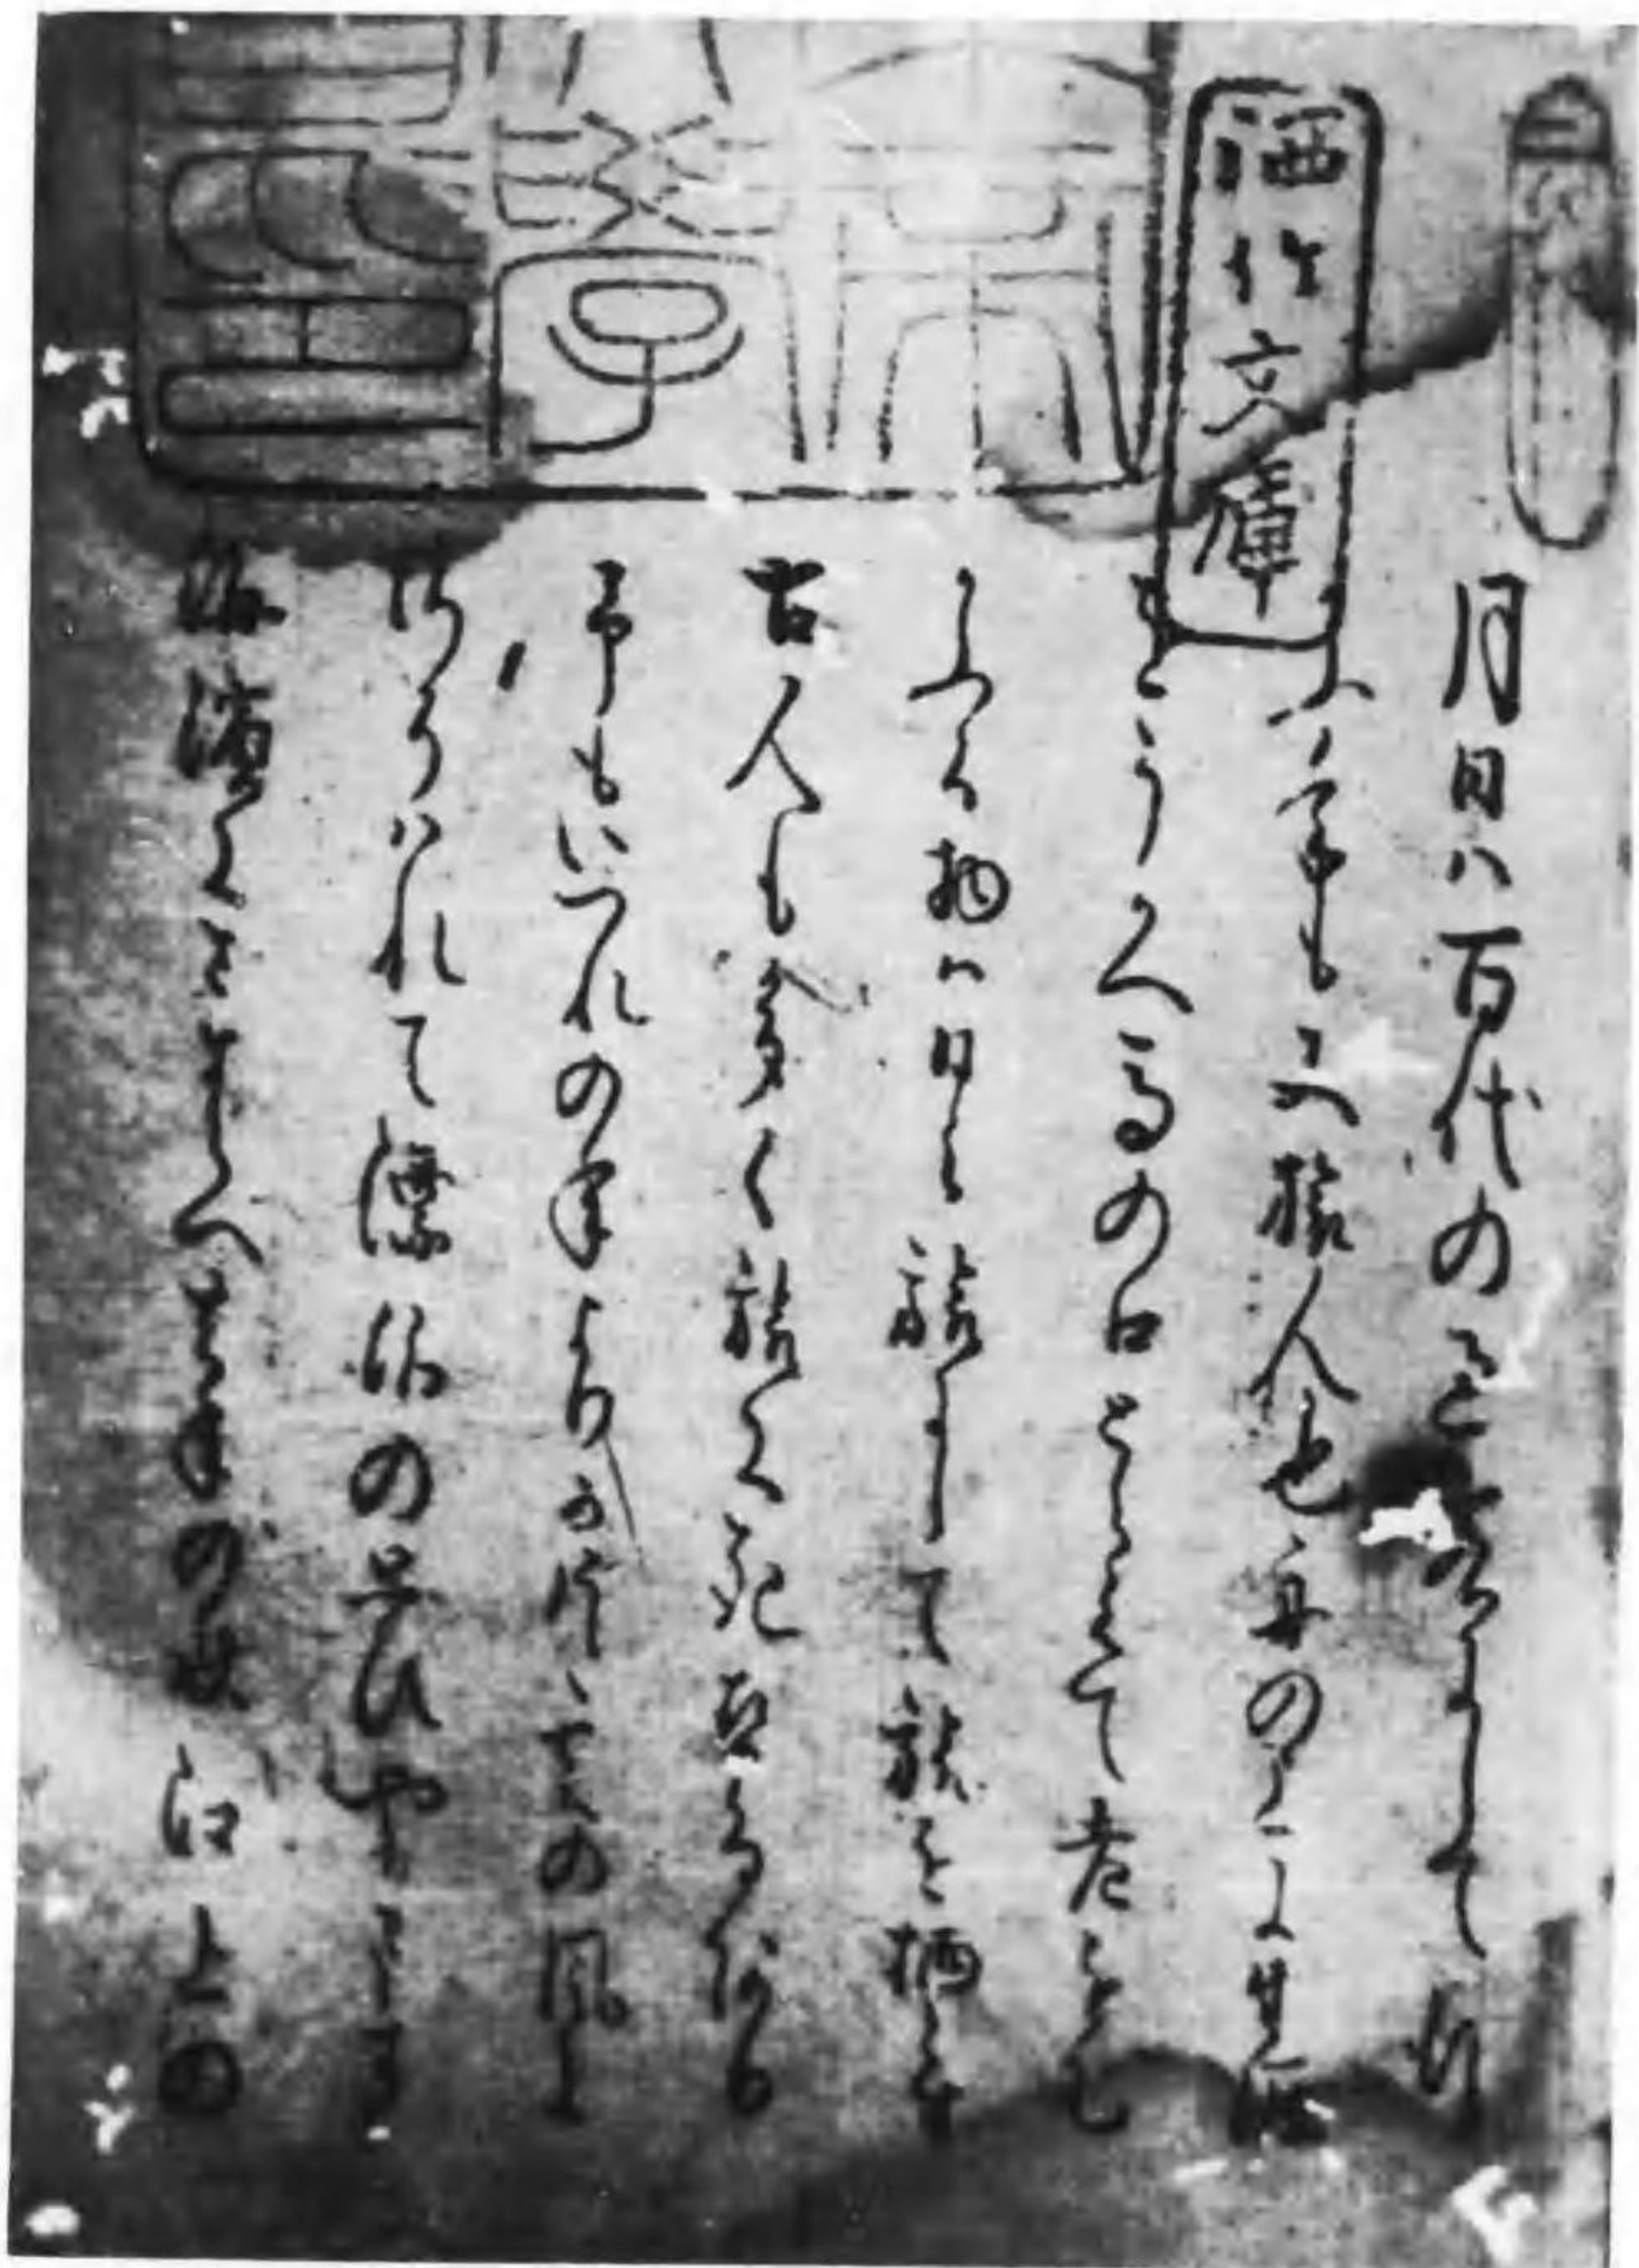 洒竹文庫
月日ハ百代の過客にして行
かふ年も又旅人也舟のうへに生涯
をうかへ馬の口とらえて老をむ
かふる物ハ日々旅にして旅を栖とす
古人も多く旅に死せるあり
予もいつれの年よりか片雲の風に
さそハれて漂泊の思ひやます
海濱にさすらへ去年の秋江上の